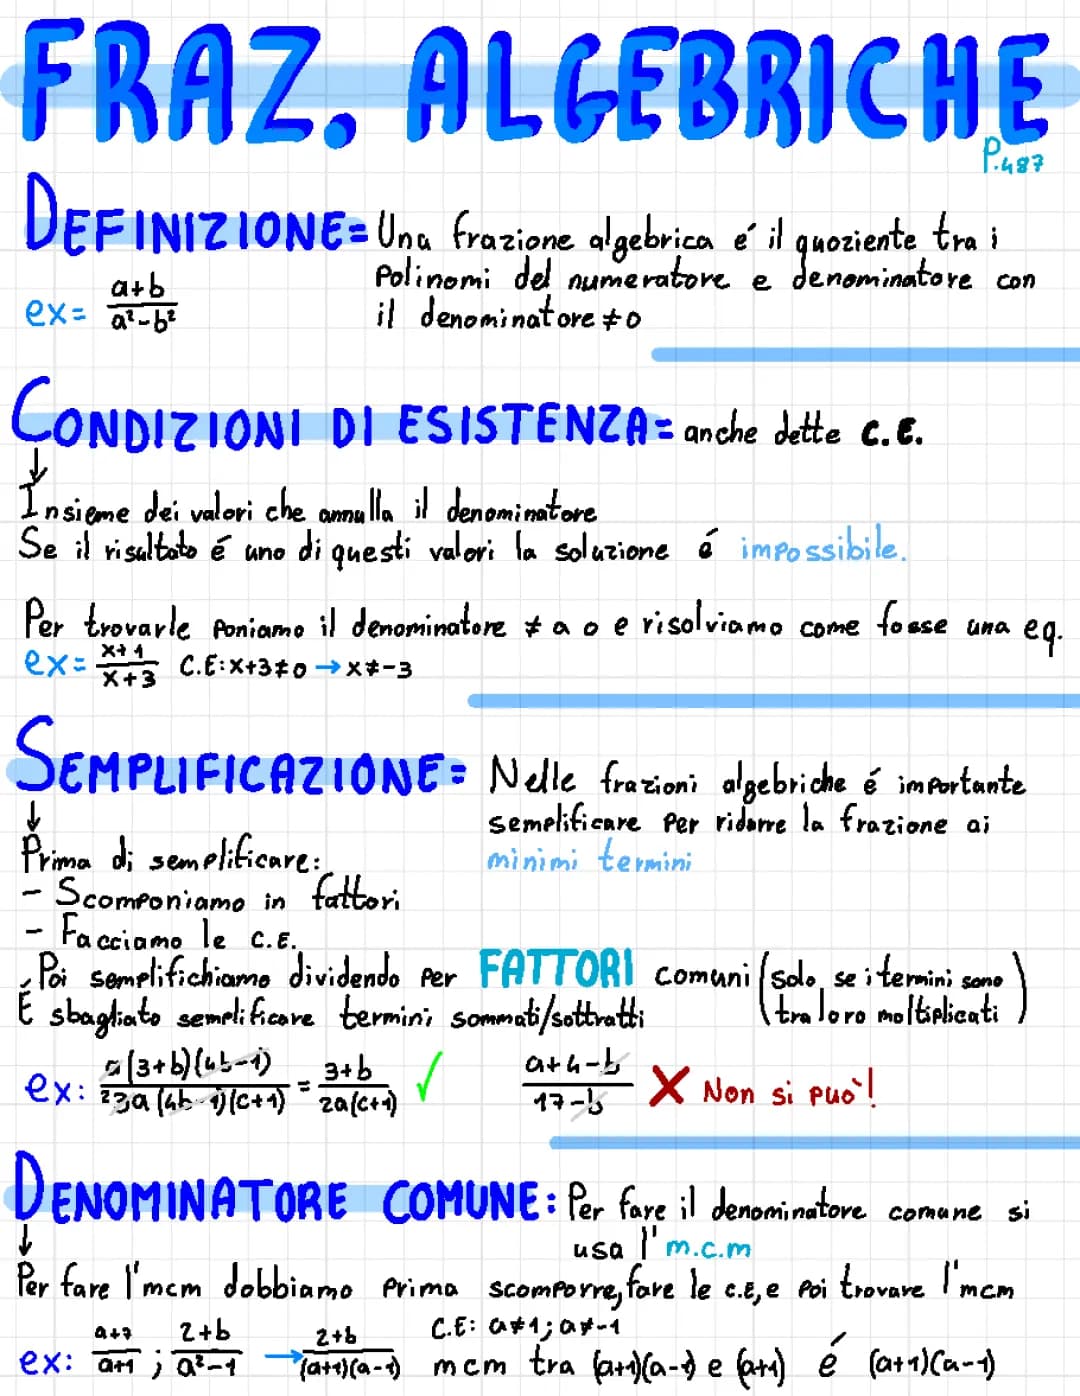 FRAZ. ALGEBRICHE
P.487
DEFINIZIONE= Una frazione algebrica é il quoziente tra i
Polinomi del numeratore e denominatore con
il denominatore ≠0
ex= a+b / a²-b²
CONDIZIONI DI ESISTENZA= anche dette C.E.
↓
Insieme dei valori che annulla il denominatore
Se il risultato é uno di questi valori la soluzione é impossibile.
Per trovarle poniamo il denominatore ≠ a 0 e risolviamo come fosse una eq.
ex= x+1 / x+3 C.E:x+3≠0 → x≠-3
SEMPLIFICAZIONE= Nelle frazioni algebriche é importante
semplificare Per ridurre la frazione ai
minimi termini
↓
Prima di semplificare:
- Scomponiamo in fattori
- Facciamo le C.E.
Poi semplifichiamo dividendo per FATTORI comuni (solo se i termini sono
tra loro moltiplicati)
É sbagliato semplificare termini sommati/sottratti
ex: a(3+b)(4b-1) / ²3a(4b-1)(c+1) = 3+b / 2a(c+1) ✓ a+4-b / 17-b X Non si può!
DENOMINATORE COMUNE: Per fare il denominatore comune si
usa l'm.c.m
↓
Per fare l'mcm dobbiamo prima scomporre, fare le c.E, e poi trovare l'mcm
ex: a+7 / a+1 ; 2+b / a²-1 → 2+b / (a+1)(a-1) C.E: a≠1; a≠-1
mcm tra (a+1)(a-1) e (a+1) é (a+1)(a-1)